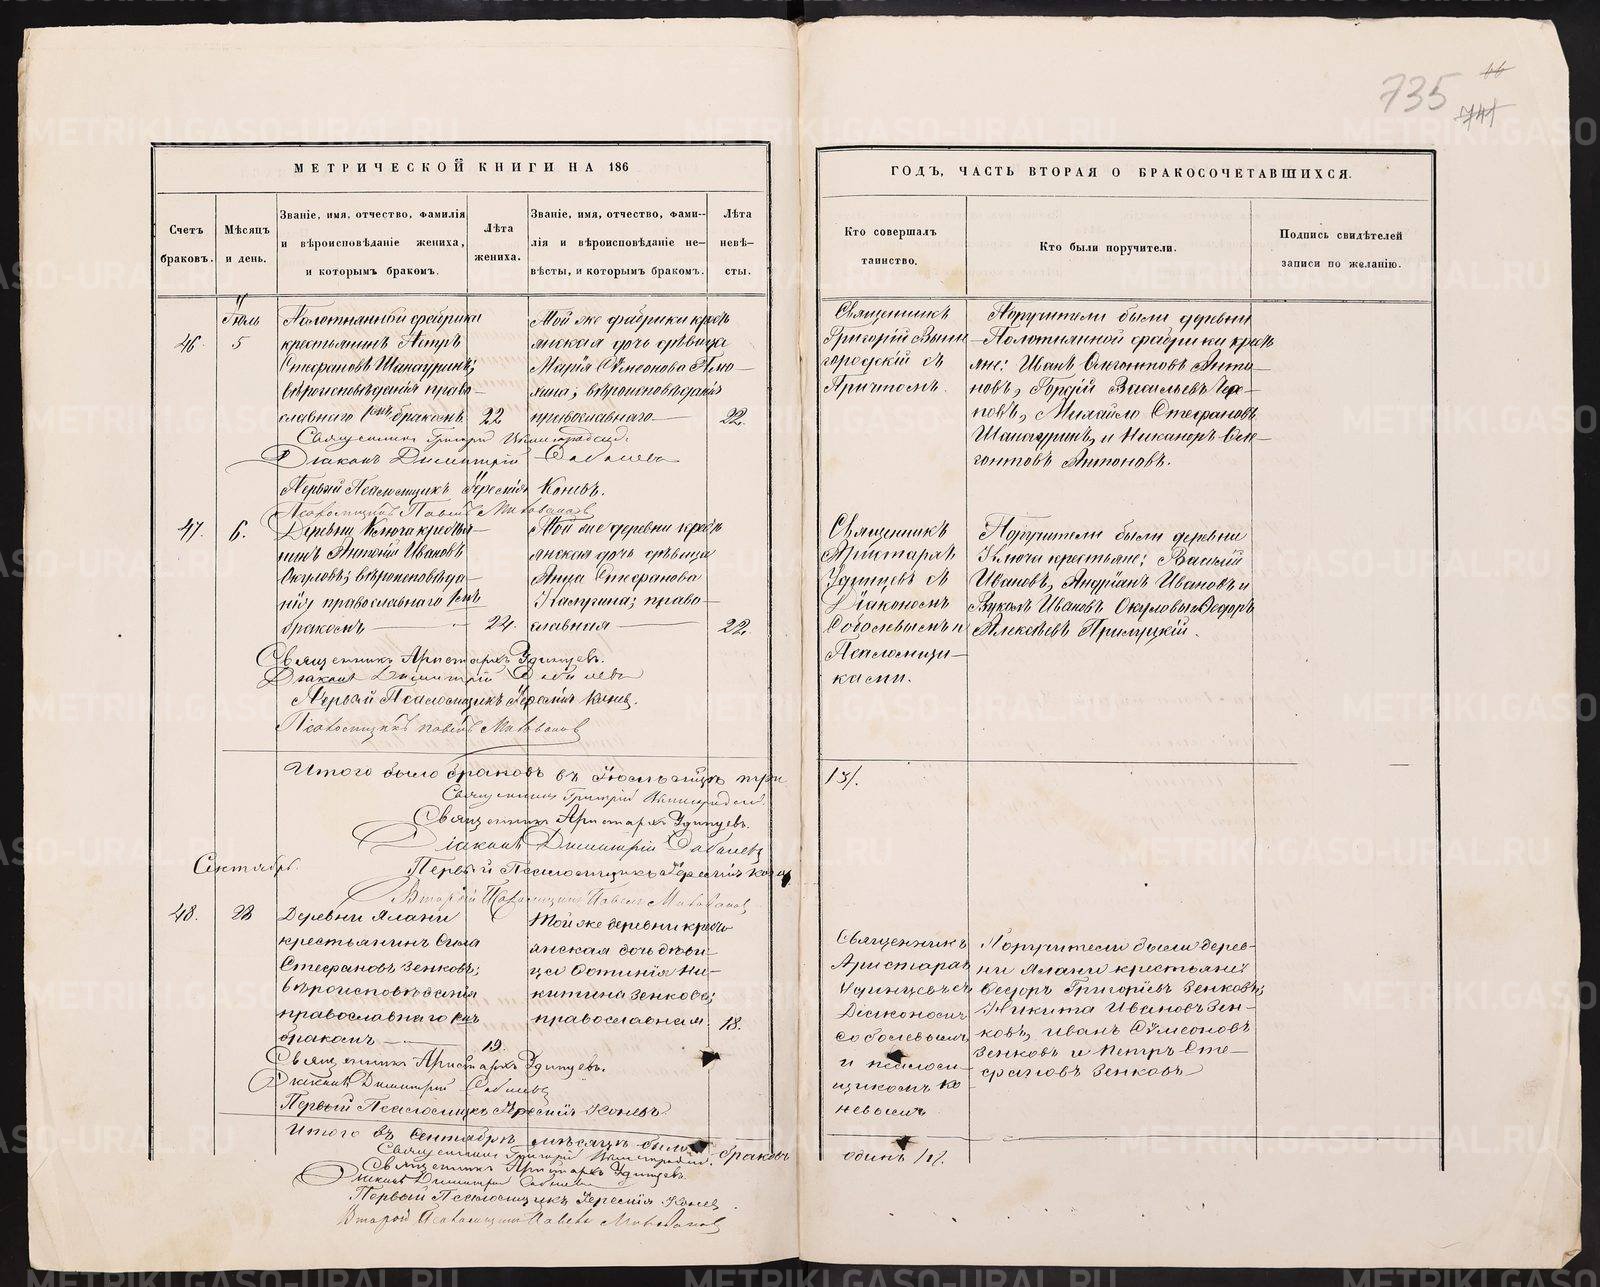 735
МЕТРИЧЕСКОЙ КНИГИ НА 186
Счетъ браковъ.
Мѣсяцъ и день.
Званіе, имя, отчество, фамилія
и вѣроисповѣданіе жениха,
и которымъ бракомъ.
Лѣта
жениха.
Званіе, имя, отчество, фами-
лія и вѣроисповѣданіе не-
вѣсты, и которымъ бракомъ.
Лѣта
невѣ-
сты.
Іюль
46.
5
Полотнянной фабрики
крестьянинъ Петръ
Стефановъ
вѣроисповѣданія право-
славнаго 1мъ бракомъ
22
Той же фабрики кресть
янская дочь дѣвица
Марія Сѵмеонова
вѣроисповѣданія
православнаго
22.
Священникъ Григорій
Діаконъ Димитрій Соболевъ
Первый Псаломщикъ Коневъ.
Псаломщикъ Павелъ
47.
6.
Деревни Ключа крестья-
нинъ Антоній Ивановъ
Окуловъ; вѣроисповѣда-
нія православнаго 1мъ
бракомъ
24.
Той же деревни кресть
янская дочь дѣвица
Анна Стефанова
Калугина; право-
славная
22.
Священникъ Аристархъ Удинцевъ.
Діаконъ Димитрій Соболевъ
Первый Псаломщикъ Коневъ.
Псаломщикъ Павелъ
Итого было браковъ въ Іюлѣ мѣсяцѣ три
Священникъ Григорій
Священникъ Аристархъ Удинцевъ.
Діаконъ Димитрій Соболевъ
Первый Псаломщикъ
Второй Псаломщикъ Павелъ
Сентябрь.
48.
Деревни Ялани
крестьянинъ Сила
Стефановъ Зенковъ;
вѣроисповѣданія
православнаго 1мъ
бракомъ
19.
Той же деревни кресть
янская дочь дѣви-
ца Фотинія Ни-
китина Зенкова;
православная
18.
Священникъ Аристархъ Удинцевъ.
Діаконъ Димитрій Соболевъ
Первый Псаломщикъ Коневъ
Итого въ Сентябрѣ мѣсяцѣ было браковъ
Священникъ Григорій
Священникъ Аристархъ Удинцевъ.
Діаконъ Димитрій Соболевъ
Первый Псаломщикъ Коневъ
Второй Псаломщикъ Павелъ
ГОДЪ, ЧАСТЬ ВТОРАЯ О БРАКОСОЧЕТАВШИХСЯ.
Кто совершалъ
таинство.
Кто были поручители.
Подпись свидѣтелей
записи по желанію.
Священникъ
Григорій Выши
городскій съ
Причтомъ.
Поручители были деревни
Полотнянной фабрики кресть
яне: Иванъ Анто-
новъ, Васильевъ
Михайло Стефановъ
и Никаноръ
Антоновъ.
Священникъ
Аристархъ
Удинцевъ съ
Діакономъ
Соболевымъ и
Псаломщи-
ками.
Поручители были деревни
Ключа крестьяне: Василій
Ивановъ, Андріанъ Ивановъ и
Вуколъ Ивановъ Окуловы и Ѳедоръ
Алексѣевъ Прилуцкій.
/3/.
Священникъ
Аристархъ
Удинцевъ съ
Діакономъ
Соболевымъ
и псалом-
щикомъ Ко
невымъ
Поручители были дерев-
ни Ялани крестьяне:
Ѳедоръ Григорьевъ Зенковъ,
Никита Ивановъ Зен-
ковъ, Иванъ Сѵмеоновъ
Зенковъ и Петръ Сте-
фановъ Зенковъ
одинъ /1/.
METRIKI.GASO-URAL.RU